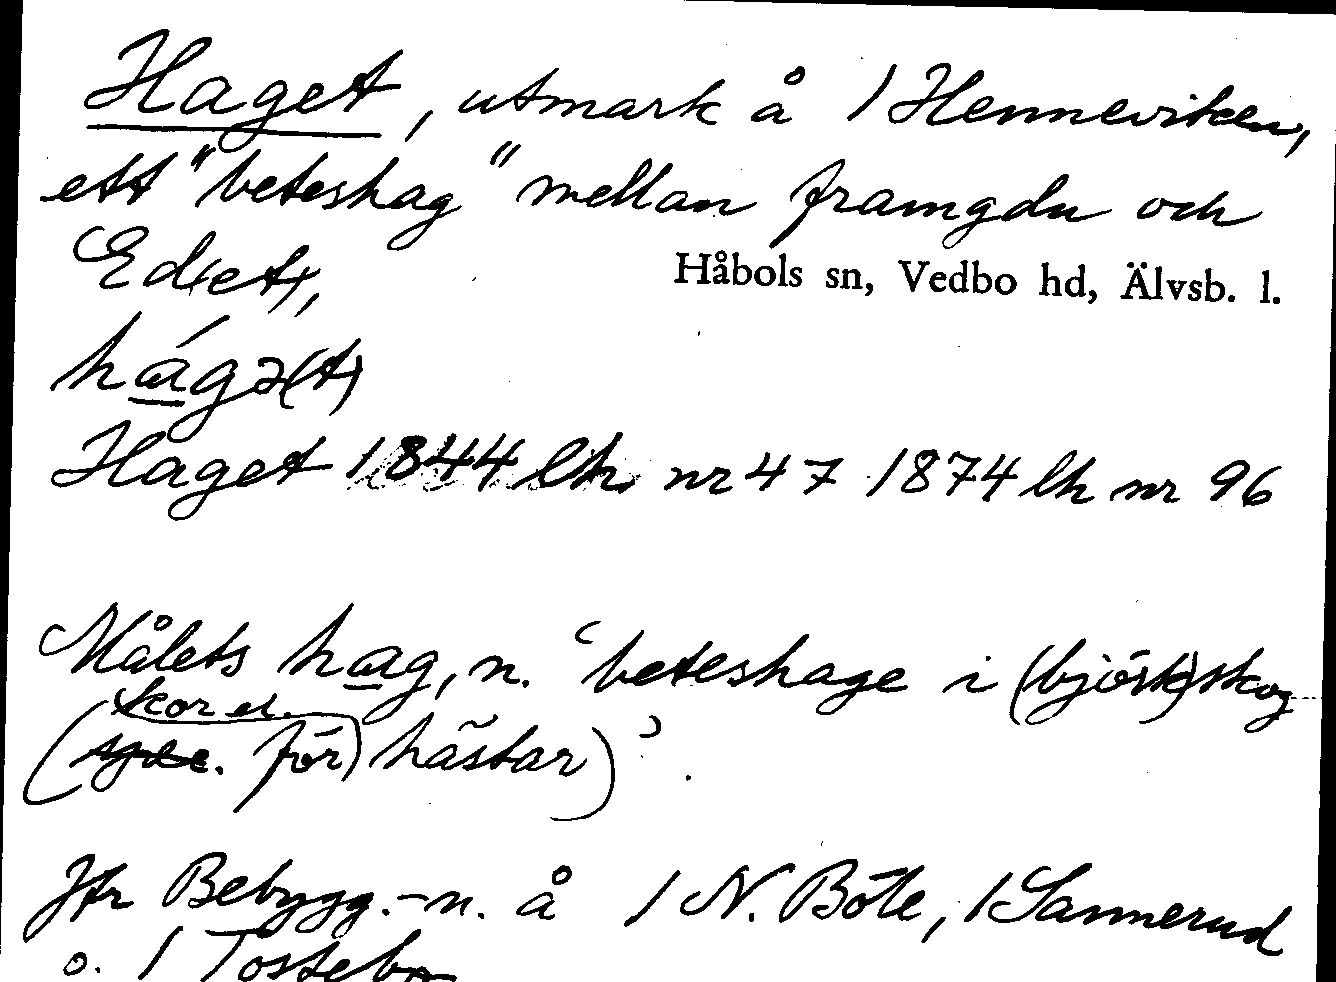 Haget, utmark å 1 Henneviken,
ett "beteshag" mellan framgdn och
Ed(et),
Håbols sn, Vedbo hd, Älvsb. l.
hágə(t)
Haget 1844 lh nr 47 1874 lh nr 96
Målets hag, n. 'beteshage i (björk)skog
kor el.
(spec. för) hästar)'.
Jfr Bebygg.-n. å 1 N. Böle, 1 Sannerud
o. 1 Tostebo